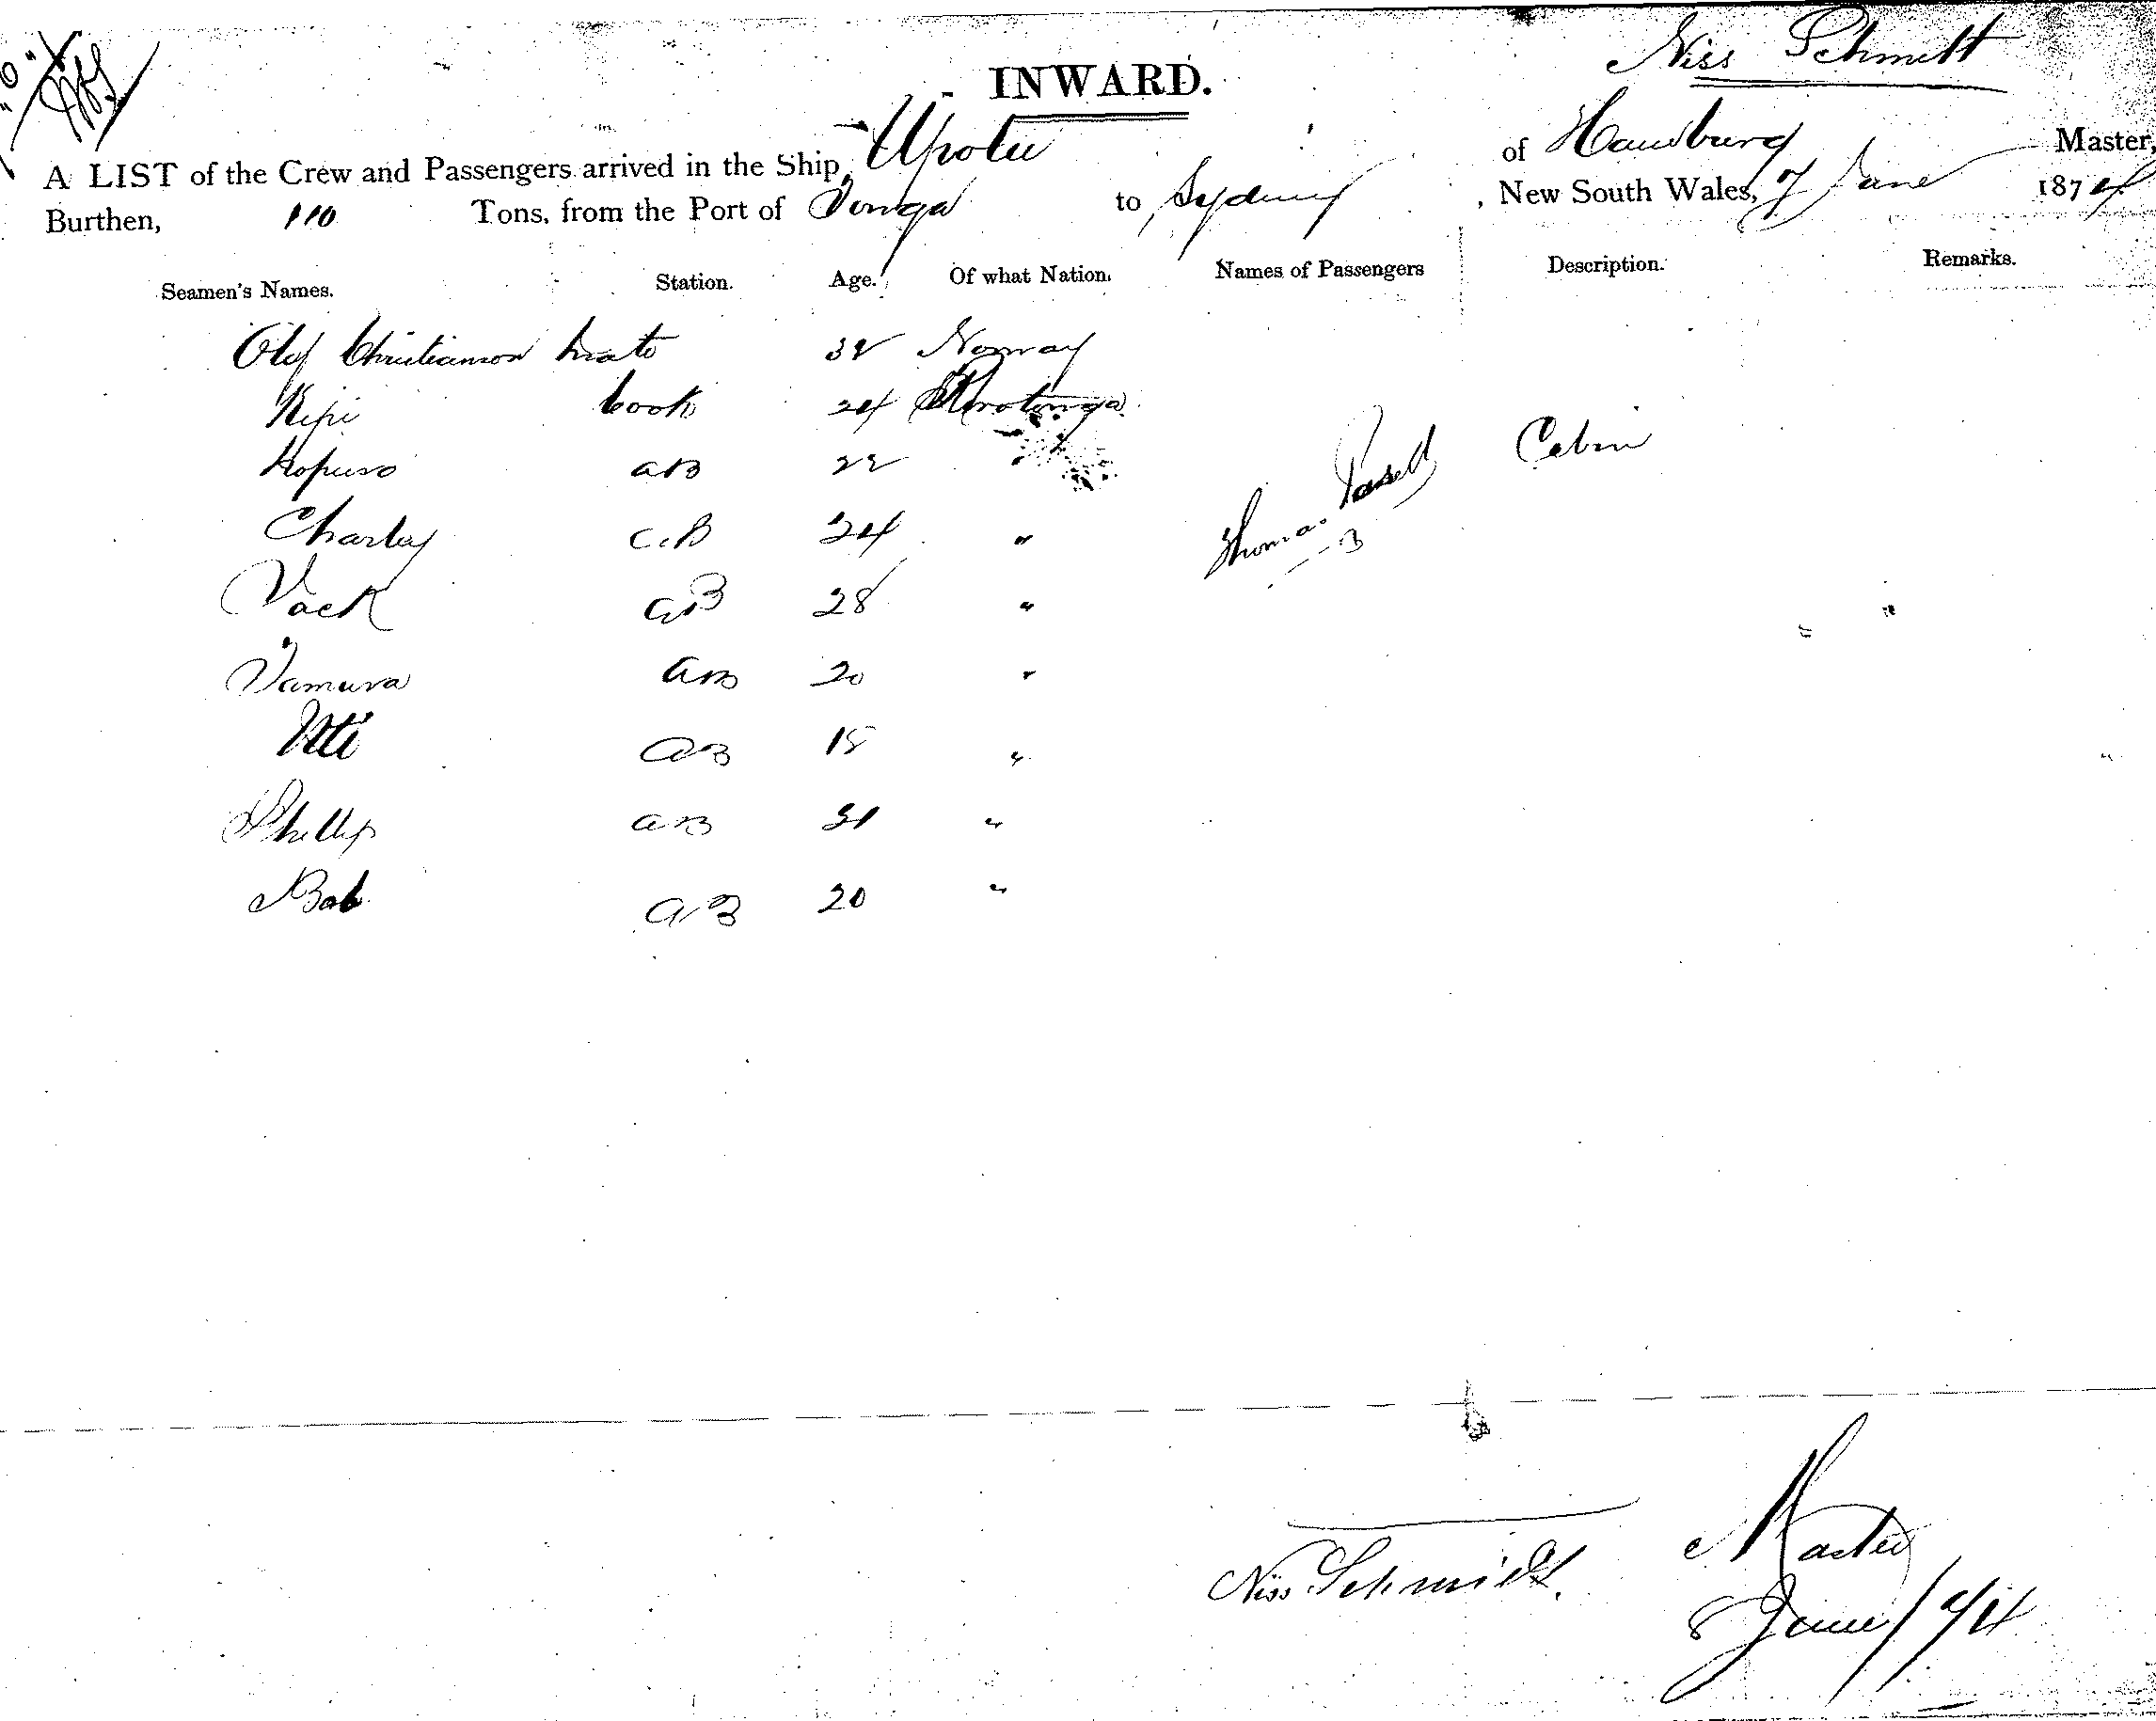 INWARD.
Niss Schmitt
A LIST of the Crew and Passengers arrived in the Ship Upolu of Hamburg Master,
Burthen, 110 Tons, from the Port of Tonga to Sydney, New South Wales, 7 June 1874
Seamen's Names. Station. Age. Of what Nation. Names of Passengers Description. Remarks.
Olof Christianson Mate 32 Norway
Kipi Cook 24 Rarotonga
Kopuso AB 22 "
Charley A.B 24 "
Jack AB 28 "
Tamura AB 20 "
AB 18 "
Phillip AB 31 "
Bob AB 20 "
Thomas Cabin
Niss Schmidt. Master
8 June / 74